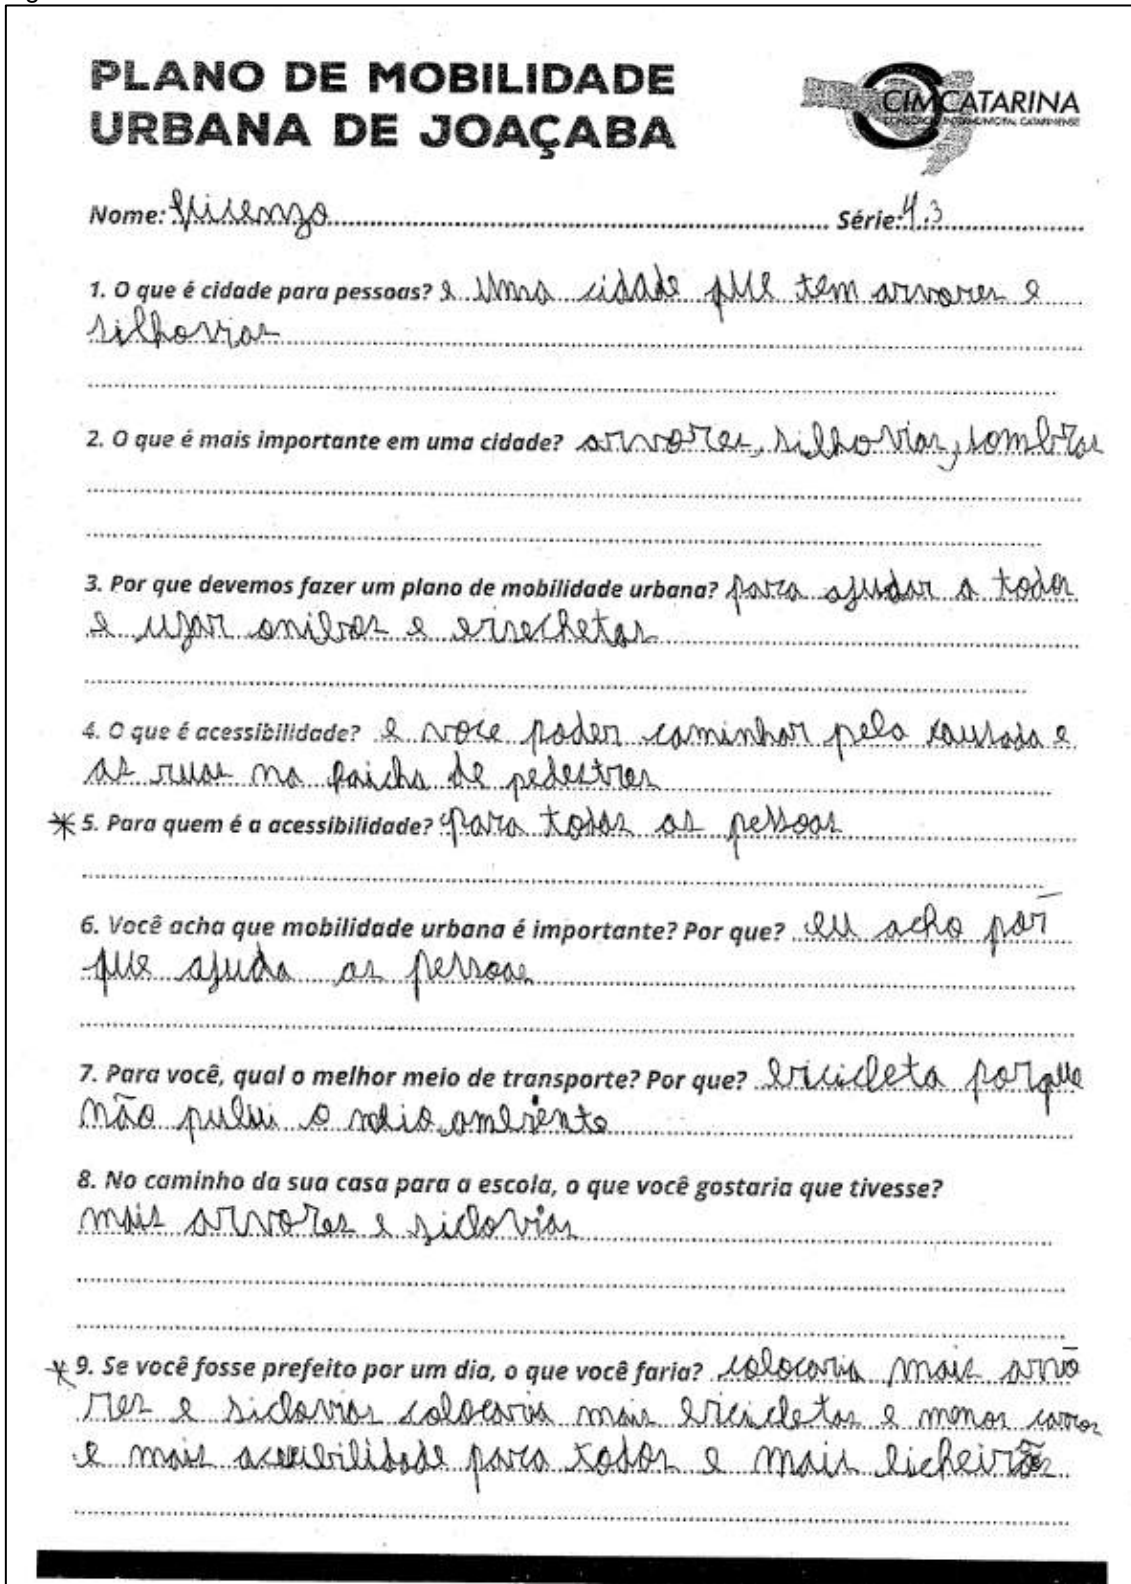 PLANO DE MOBILIDADE
URBANA DE JOAÇABA
CIMCATARINA
CONSÓRCIO INTERMUNICIPAL CATARINENSE
Nome: Vicenzo Série: 4.3
1. O que é cidade para pessoas? e uma cidade que tem arvores e
silhovias
2. O que é mais importante em uma cidade? arvores, silhovias, sombras
3. Por que devemos fazer um plano de mobilidade urbana? para ajudar a todos
e uzar onibos e
4. O que é acessibilidade? e voce poder caminhar pela causada e
as ruas na faicha de pedestres
5. Para quem é a acessibilidade? para todas as pessoas
6. Você acha que mobilidade urbana é importante? Por que? eu acho por
que ajuda as pessoas
7. Para você, qual o melhor meio de transporte? Por que? bicicleta porque
não pului o meio ambiente
8. No caminho da sua casa para a escola, o que você gostaria que tivesse?
mais arvores e siclovias
9. Se você fosse prefeito por um dia, o que você faria? colocaria mais arvo
res e siclovias colocaria mais bicicletas e menos carros
e mais acecibilidade para todos e mais licheirões